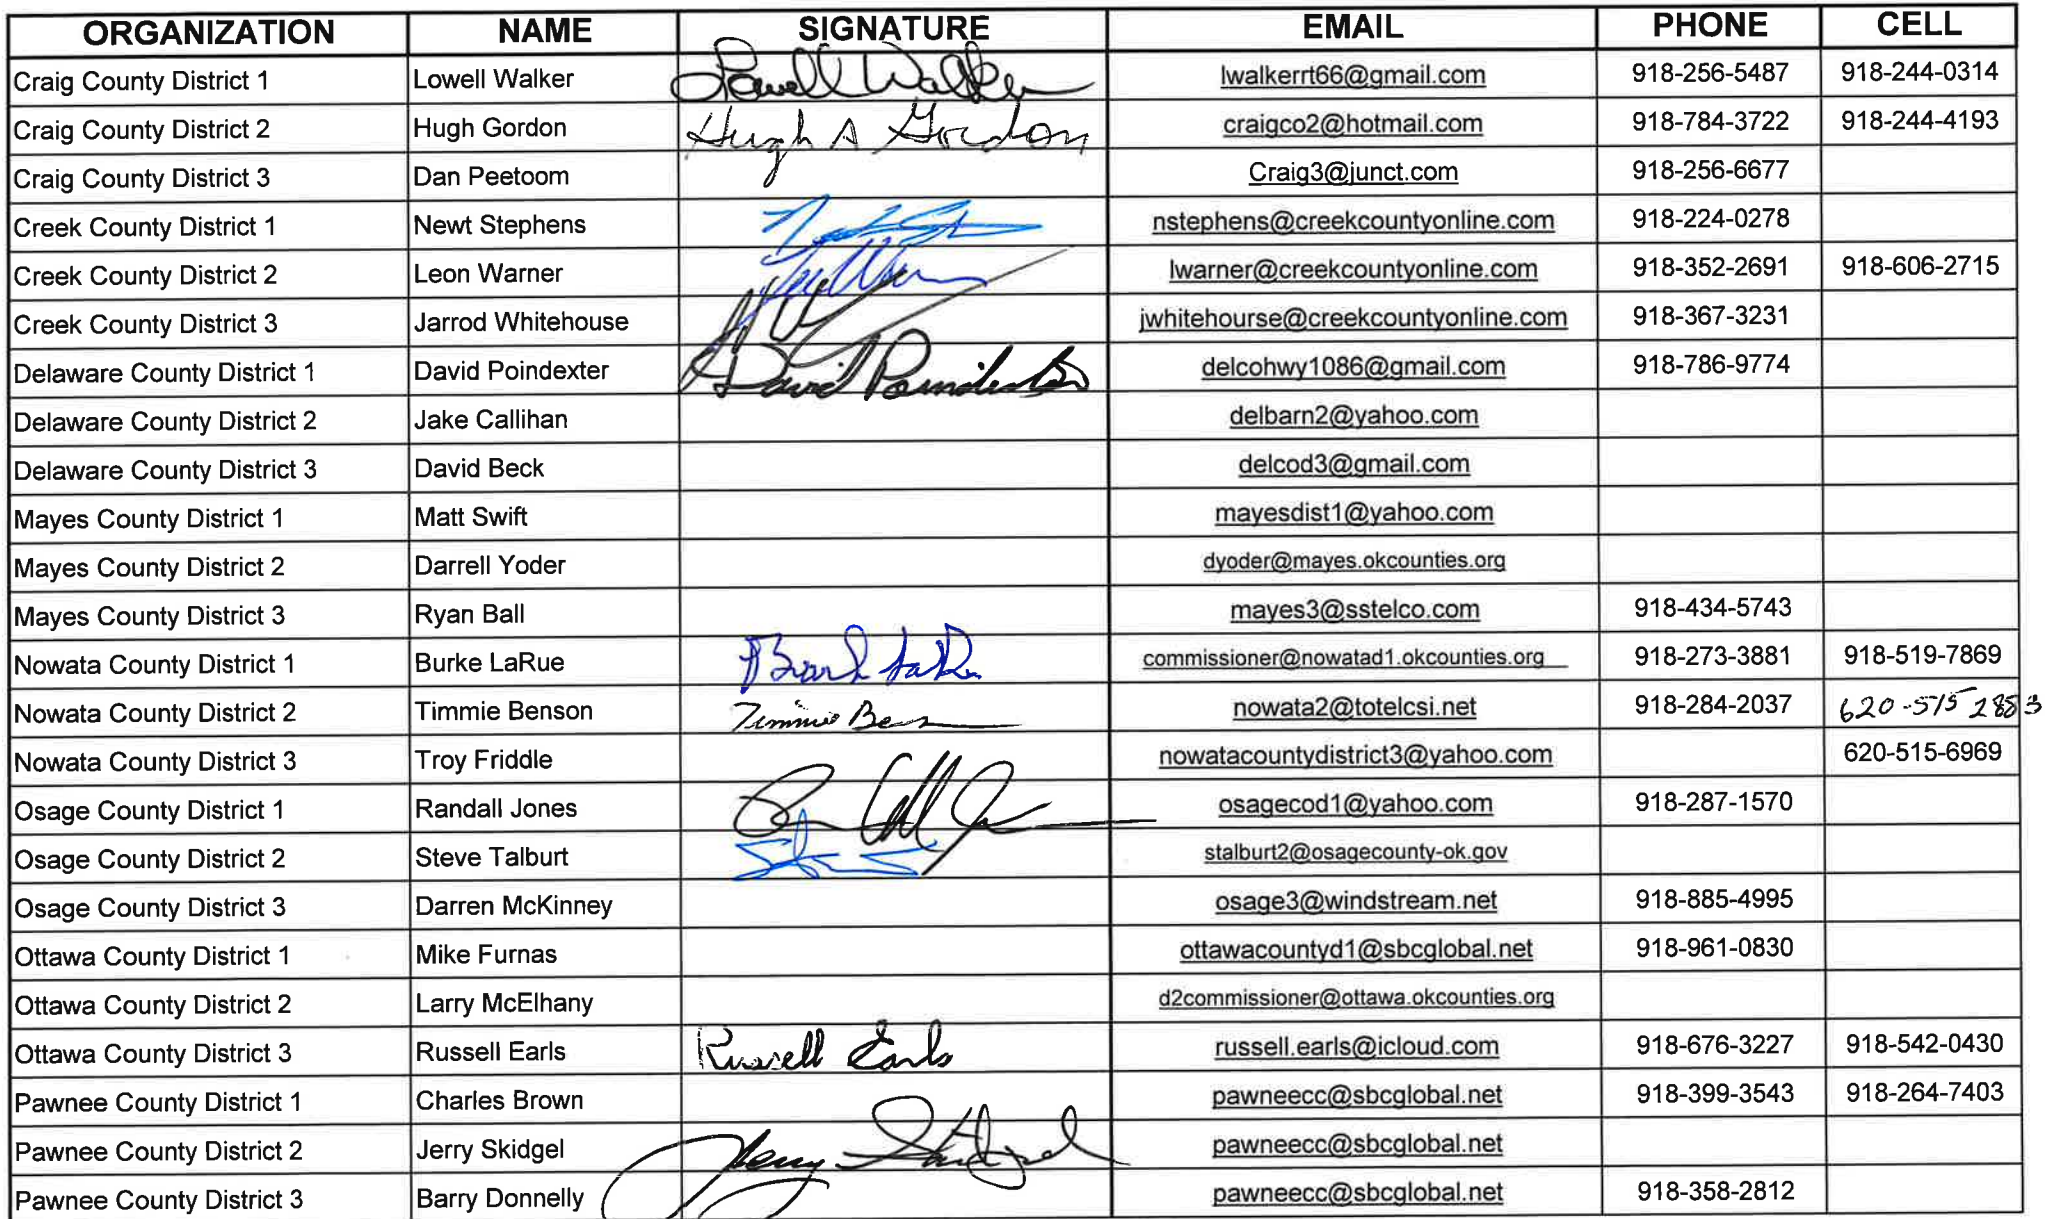 ORGANIZATION NAME SIGNATURE EMAIL PHONE CELL
Craig County District 1 Lowell Walker Lowell Walker lwalkerrt66@gmail.com 918-256-5487 918-244-0314
Craig County District 2 Hugh Gordon Hugh A Gordon craigco2@hotmail.com 918-784-3722 918-244-4193
Craig County District 3 Dan Peetoom Craig3@junct.com 918-256-6677
Creek County District 1 Newt Stephens nstephens@creekcountyonline.com 918-224-0278
Creek County District 2 Leon Warner lwarner@creekcountyonline.com 918-352-2691 918-606-2715
Creek County District 3 Jarrod Whitehouse jwhitehourse@creekcountyonline.com 918-367-3231
Delaware County District 1 David Poindexter David Poindexter delcohwy1086@gmail.com 918-786-9774
Delaware County District 2 Jake Callihan delbarn2@yahoo.com
Delaware County District 3 David Beck delcod3@gmail.com
Mayes County District 1 Matt Swift mayesdist1@yahoo.com
Mayes County District 2 Darrell Yoder dyoder@mayes.okcounties.org
Mayes County District 3 Ryan Ball mayes3@sstelco.com 918-434-5743
Nowata County District 1 Burke LaRue commissioner@nowatad1.okcounties.org 918-273-3881 918-519-7869
Nowata County District 2 Timmie Benson Timmie nowata2@totelcsi.net 918-284-2037 620-515 2883
Nowata County District 3 Troy Friddle nowatacountydistrict3@yahoo.com 620-515-6969
Osage County District 1 Randall Jones osagecod1@yahoo.com 918-287-1570
Osage County District 2 Steve Talburt stalburt2@osagecounty-ok.gov
Osage County District 3 Darren McKinney osage3@windstream.net 918-885-4995
Ottawa County District 1 Mike Furnas ottawacountyd1@sbcglobal.net 918-961-0830
Ottawa County District 2 Larry McElhany d2commissioner@ottawa.okcounties.org
Ottawa County District 3 Russell Earls Russell Earls russell.earls@icloud.com 918-676-3227 918-542-0430
Pawnee County District 1 Charles Brown pawneecc@sbcglobal.net 918-399-3543 918-264-7403
Pawnee County District 2 Jerry Skidgel Jerry Skidgel pawneecc@sbcglobal.net
Pawnee County District 3 Barry Donnelly pawneecc@sbcglobal.net 918-358-2812